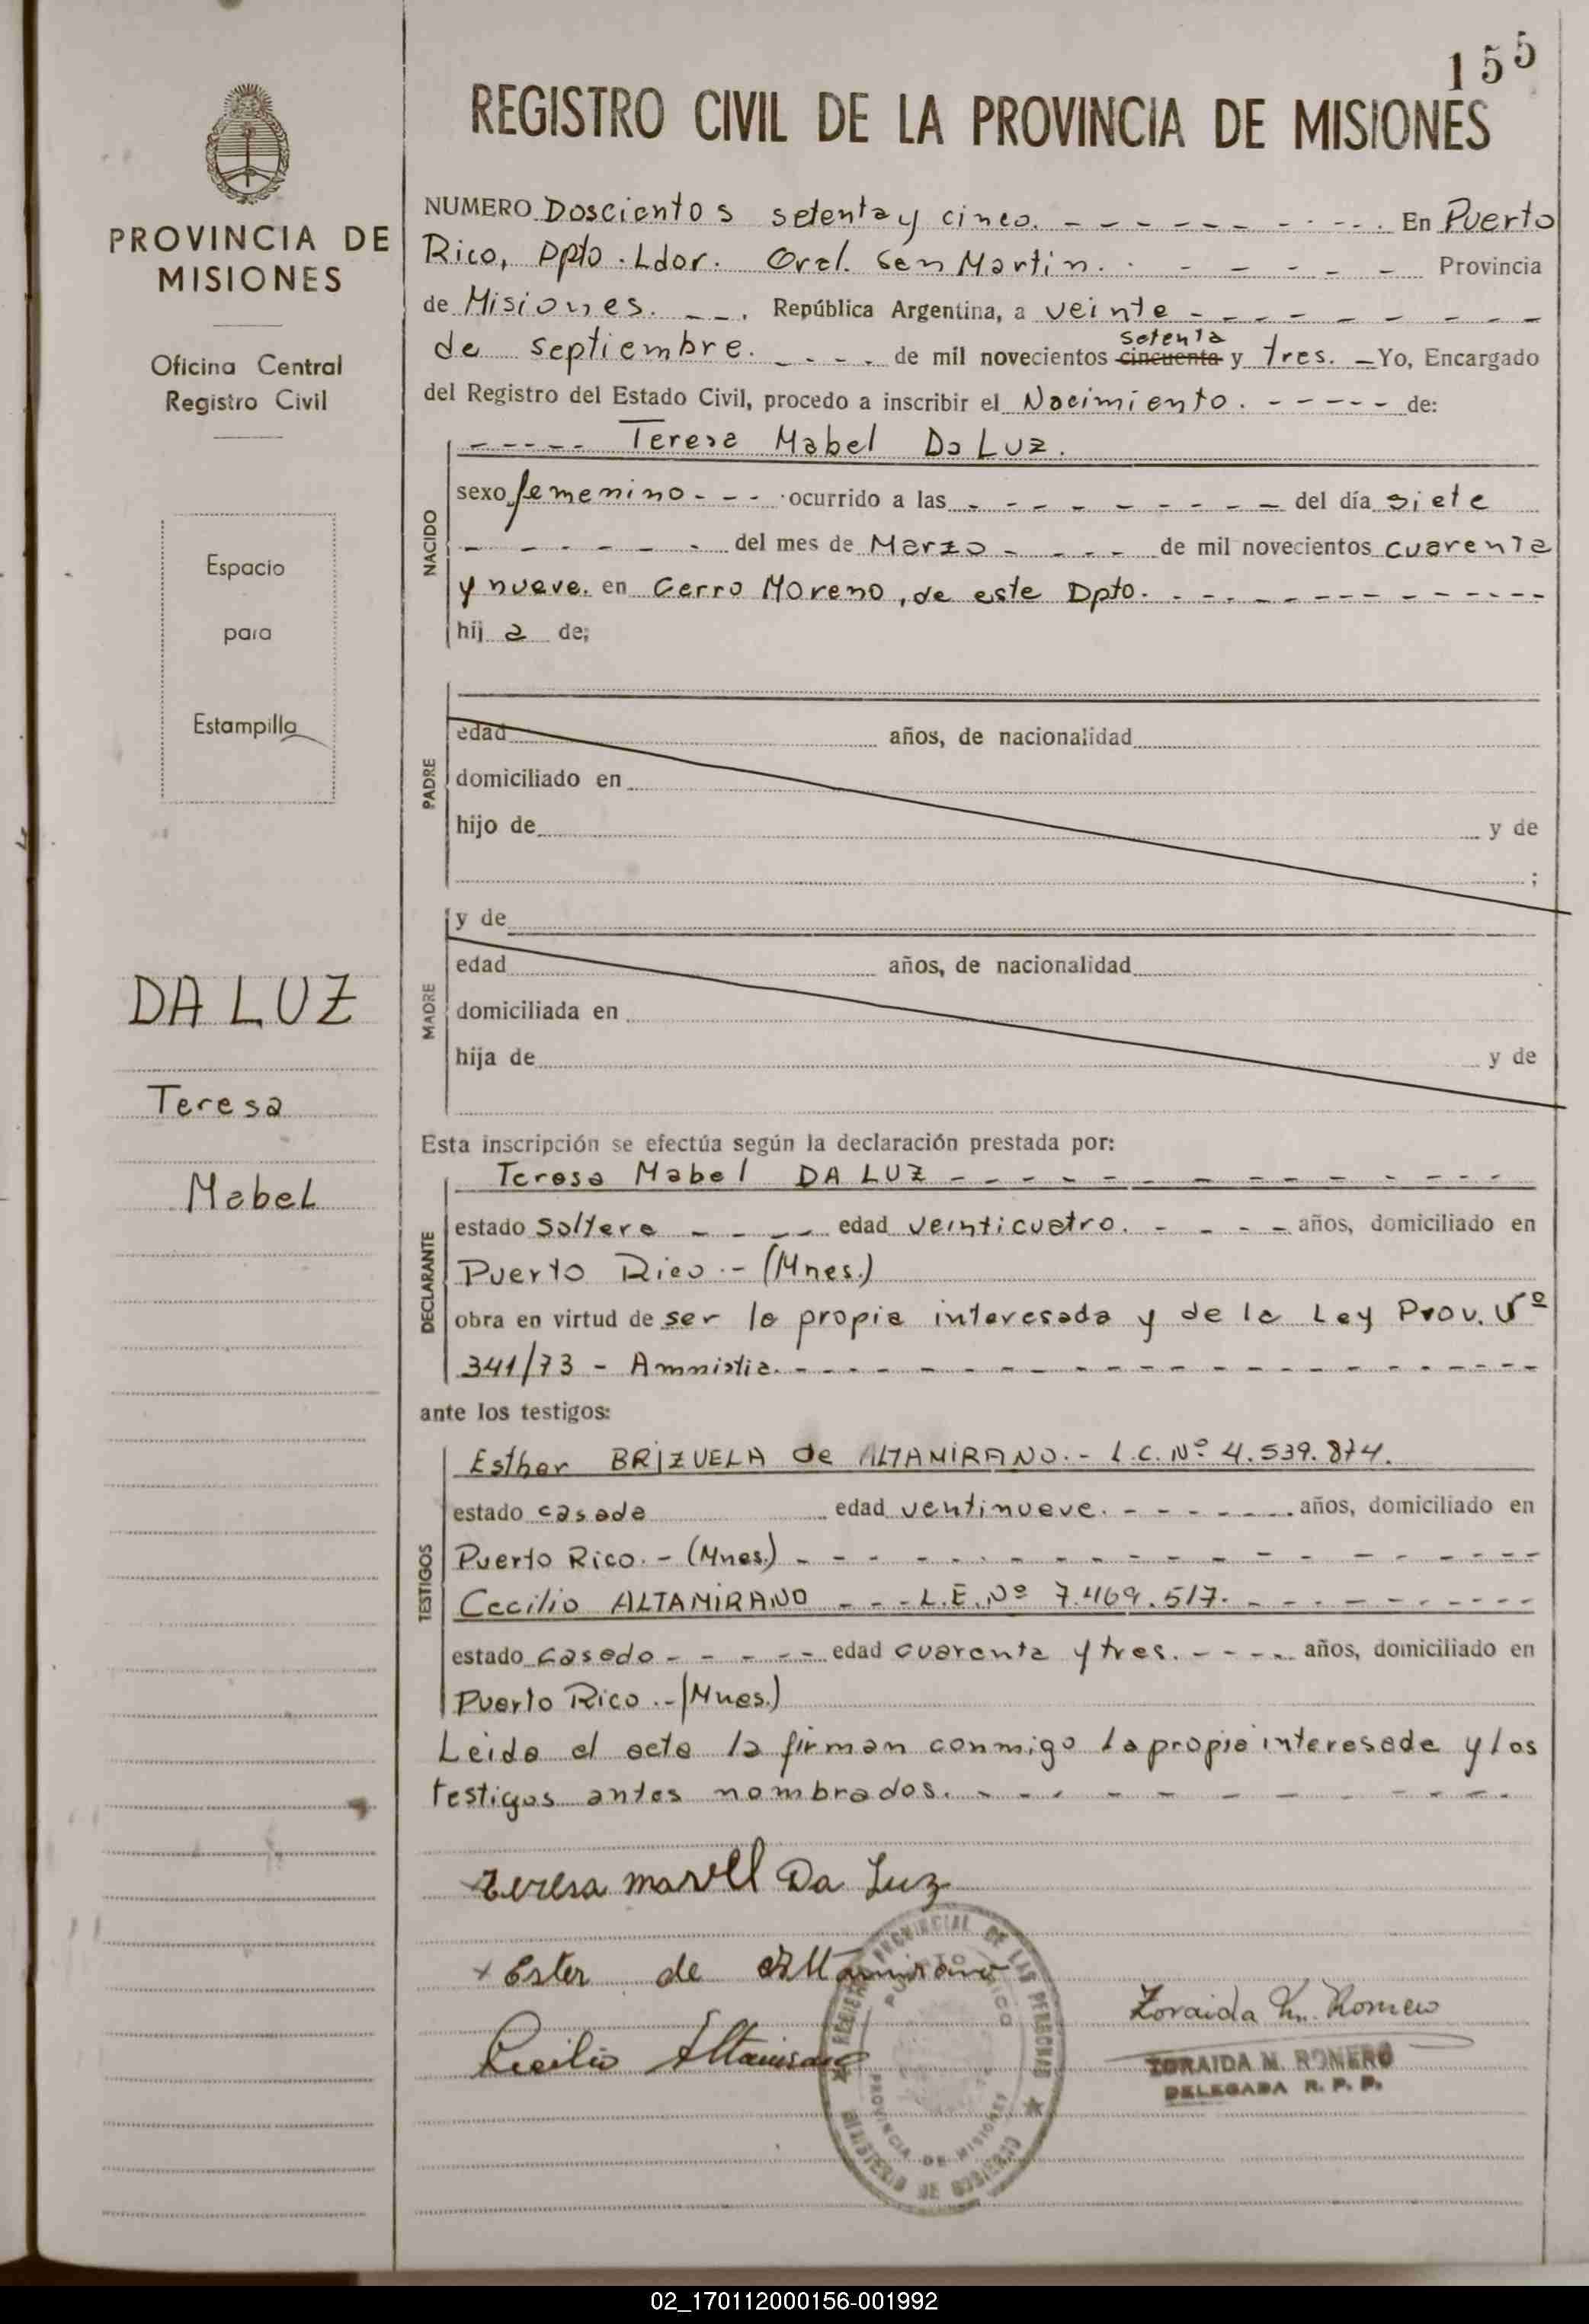 155
REGISTRO CIVIL DE LA PROVINCIA DE MISIONES
PROVINCIA DE
MISIONES
Oficina Central
Registro Civil
Espacio
para
Estampilla
DA LUZ
Teresa
Mabel
NUMERO Doscientos setenta y cinco. - - - - - - - - - En Puerto
Rico, Dpto. Ldor. Gral. San Martín. - - - - - - Provincia
de Misiones. - - . República Argentina, a veinte - - - - - - - - -
setenta
de septiembre. - - - - de mil novecientos cincuenta y tres. - Yo, Encargado
del Registro del Estado Civil, procedo a inscribir el Nacimiento. - - - - - de:
- - - - - Teresa Mabel Da Luz.
NACIDO
sexo femenino - - - ocurrido a las - - - - - - - - - del día siete
- - - - - - - del mes de Marzo - - - - de mil novecientos cuarenta
y nueve. en Cerro Moreno, de este Dpto. - - - - - - - - - - - -
hij a de;
PADRE
edad años, de nacionalidad
domiciliado en
hijo de y de
;
MADRE
y de
edad años, de nacionalidad
domiciliada en
hija de y de
Esta inscripción se efectúa según la declaración prestada por:
DECLARANTE
Teresa Mabel DA LUZ - - - - - - - - - - - - -
estado soltera - - - - - edad veinticuatro. - - - - años, domiciliado en
Puerto Rico .- (Mnes.)
obra en virtud de ser la propia interesada y de la Ley Prov. Nº
341/73 - Amnistia. - - - - - - - - - - - - - - - - - -
ante los testigos:
TESTIGOS
Esther BRIZUELA de ALTAMIRANO.- L.C. Nº 4.539.874.
estado casada edad ventinueve. - - - - - - - años, domiciliado en
Puerto Rico. - (Mnes.) - - - - - - - - - - - - - - - -
Cecilio ALTAMIRANO - - - L.E. Nº 7.469.517. - - - - - - - - -
estado casado - - - - - - edad cuarenta y tres. - - - - años, domiciliado en
Puerto Rico .- (Mnes.)
Leida el acta la firman conmigo la propia interesada y los
testigos antes nombrados. - - - - - - - - - - - -
Teresa marvel Da Luz
x Ester de Altamirano
Cecilio Altamirano
REGISTRO PROVINCIAL DE LAS PERSONAS
PUERTO RICO
PROVINCIA DE MISIONES
MINISTERIO DE GOBIERNO
Zoraida M. Romero
ZORAIDA M. ROMERO
DELEGADA R. P. P.
02_170112000156-001992